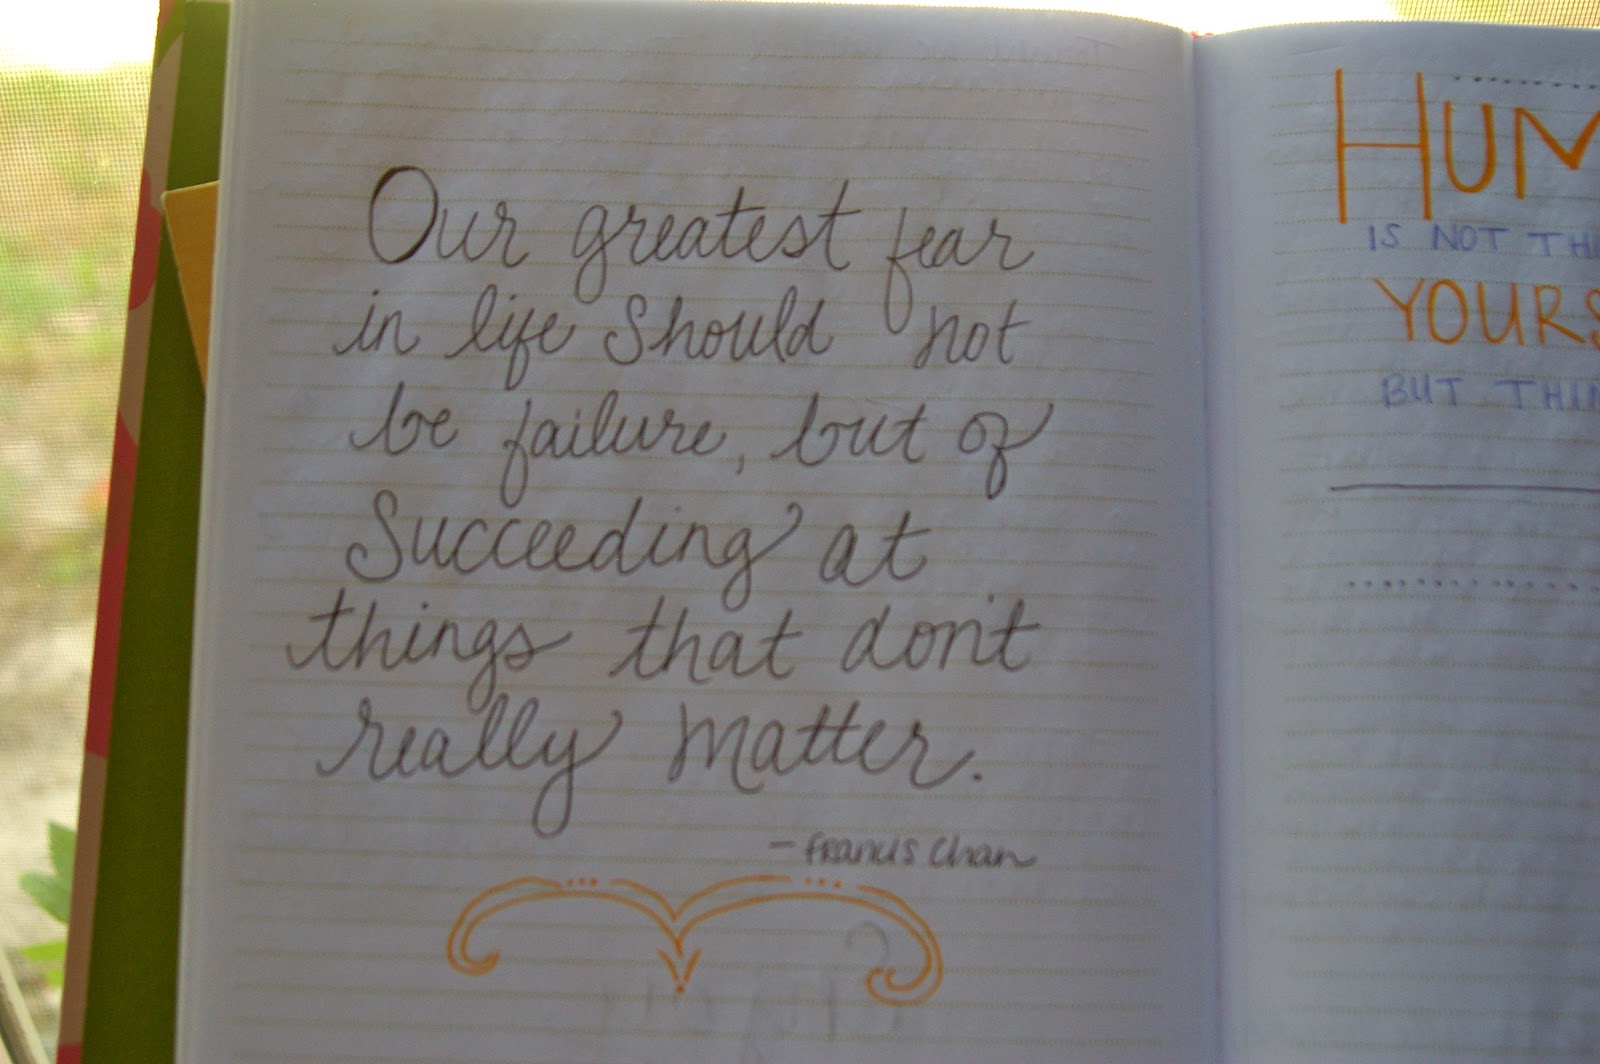 Our greatest fear
in life should not
be failure, but of
Succeeding at
things that don't
really matter.
- Francis Chan
HUM
IS NOT THI
YOURS
BUT THIN